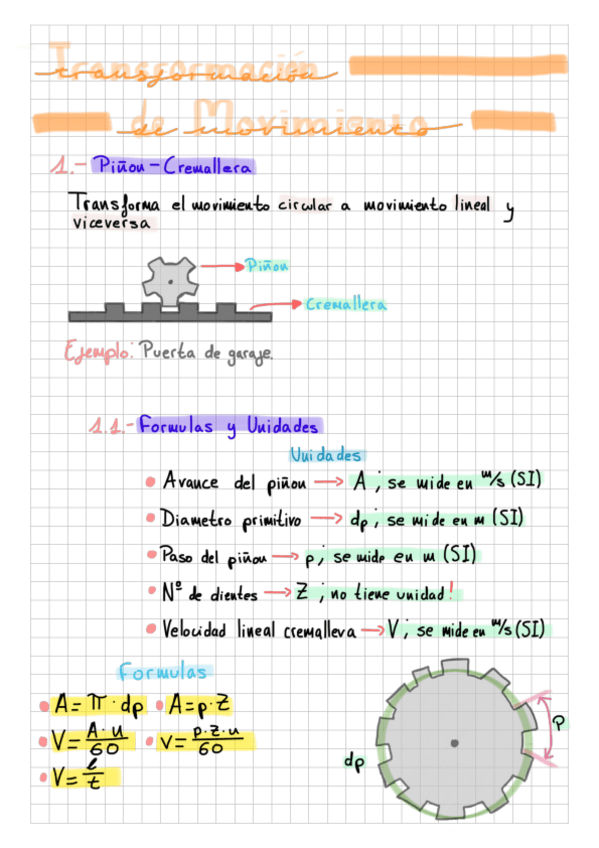 Transformación
de Movimiento
1.- Piñon-Cremallera
Transforma el movimiento circular a movimiento lineal y
viceversa
Piñon
Cremallera
Ejemplo: Puerta de garaje.
1.1.- Formulas y Unidades
Unidades
• Avance del piñon → A ; se mide en m/s (SI)
• Diametro primitivo → dp ; se mide en m (SI)
• Paso del piñon → p ; se mide en m (SI)
• Nº de dientes → Z ; no tiene unidad!
• Velocidad lineal cremalleva → V ; se mide en m/s (SI)
Formulas
• A = π · dp • A = p · Z
• V = A·u/60 • V = p·z·u/60
• V = l/t
p
dp